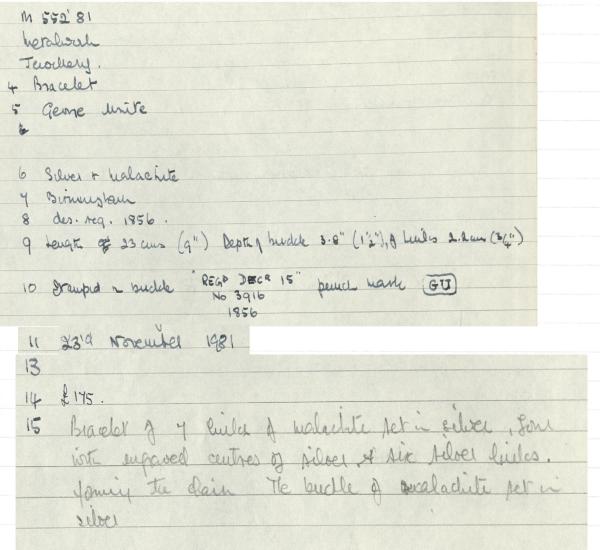 M 552'81
Metalwork
Jewellery.
4 Bracelet
5 George Unite
6
6 Silver + Malachite
7 Birmingham
8 des. reg. 1856.
9 Length 23 cms (9") Depth of buckle 3.8" (1½"), of links 2.2 cms (¾")
10 Stamped on buckle "REGD DECR 15" punch mark GU
No 3916
1856
11 23rd November 1981
13
14 £175.
15 Bracelet of 7 links of malachite set in silver, four
with engraved centres of silver, & six silver links.
forming the chain The buckle of malachite set in
silver